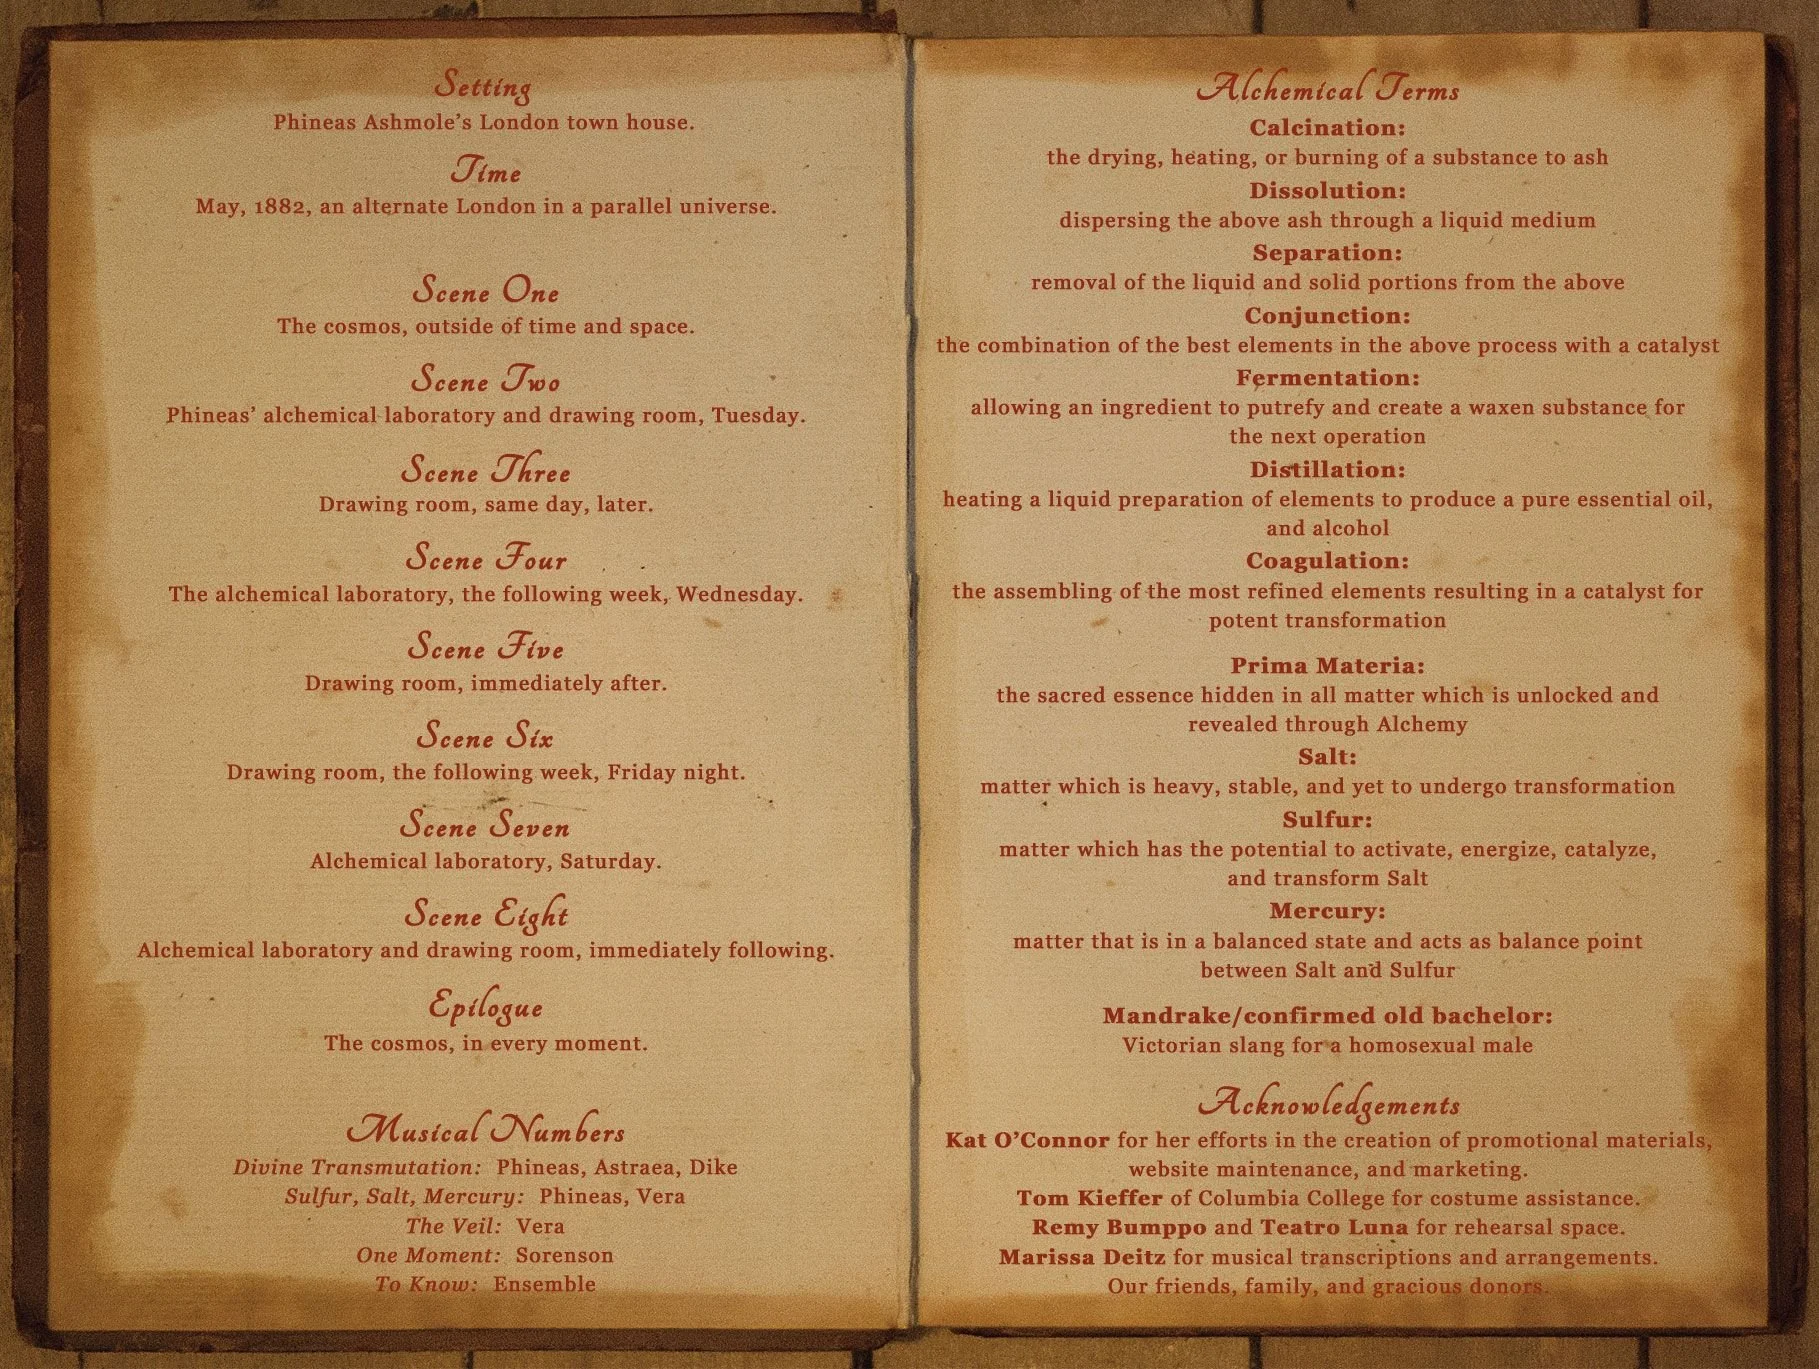 Setting
Phineas Ashmole's London town house.
Time
May, 1882, an alternate London in a parallel universe.
Scene One
The cosmos, outside of time and space.
Scene Two
Phineas' alchemical laboratory and drawing room, Tuesday.
Scene Three
Drawing room, same day, later.
Scene Four
The alchemical laboratory, the following week, Wednesday.
Scene Five
Drawing room, immediately after.
Scene Six
Drawing room, the following week, Friday night.
Scene Seven
Alchemical laboratory, Saturday.
Scene Eight
Alchemical laboratory and drawing room, immediately following.
Epilogue
The cosmos, in every moment.
Musical Numbers
Divine Transmutation: Phineas, Astraea, Dike
Sulfur, Salt, Mercury: Phineas, Vera
The Veil: Vera
One Moment: Sorenson
To Know: Ensemble
Alchemical Terms
Calcination:
the drying, heating, or burning of a substance to ash
Dissolution:
dispersing the above ash through a liquid medium
Separation:
removal of the liquid and solid portions from the above
Conjunction:
the combination of the best elements in the above process with a catalyst
Fermentation:
allowing an ingredient to putrefy and create a waxen substance for
the next operation
Distillation:
heating a liquid preparation of elements to produce a pure essential oil,
and alcohol
Coagulation:
the assembling of the most refined elements resulting in a catalyst for
potent transformation
Prima Materia:
the sacred essence hidden in all matter which is unlocked and
revealed through Alchemy
Salt:
matter which is heavy, stable, and yet to undergo transformation
Sulfur:
matter which has the potential to activate, energize, catalyze,
and transform Salt
Mercury:
matter that is in a balanced state and acts as balance point
between Salt and Sulfur
Mandrake/confirmed old bachelor:
Victorian slang for a homosexual male
Acknowledgements
Kat O'Connor for her efforts in the creation of promotional materials,
website maintenance, and marketing.
Tom Kieffer of Columbia College for costume assistance.
Remy Bumppo and Teatro Luna for rehearsal space.
Marissa Deitz for musical transcriptions and arrangements.
Our friends, family, and gracious donors.